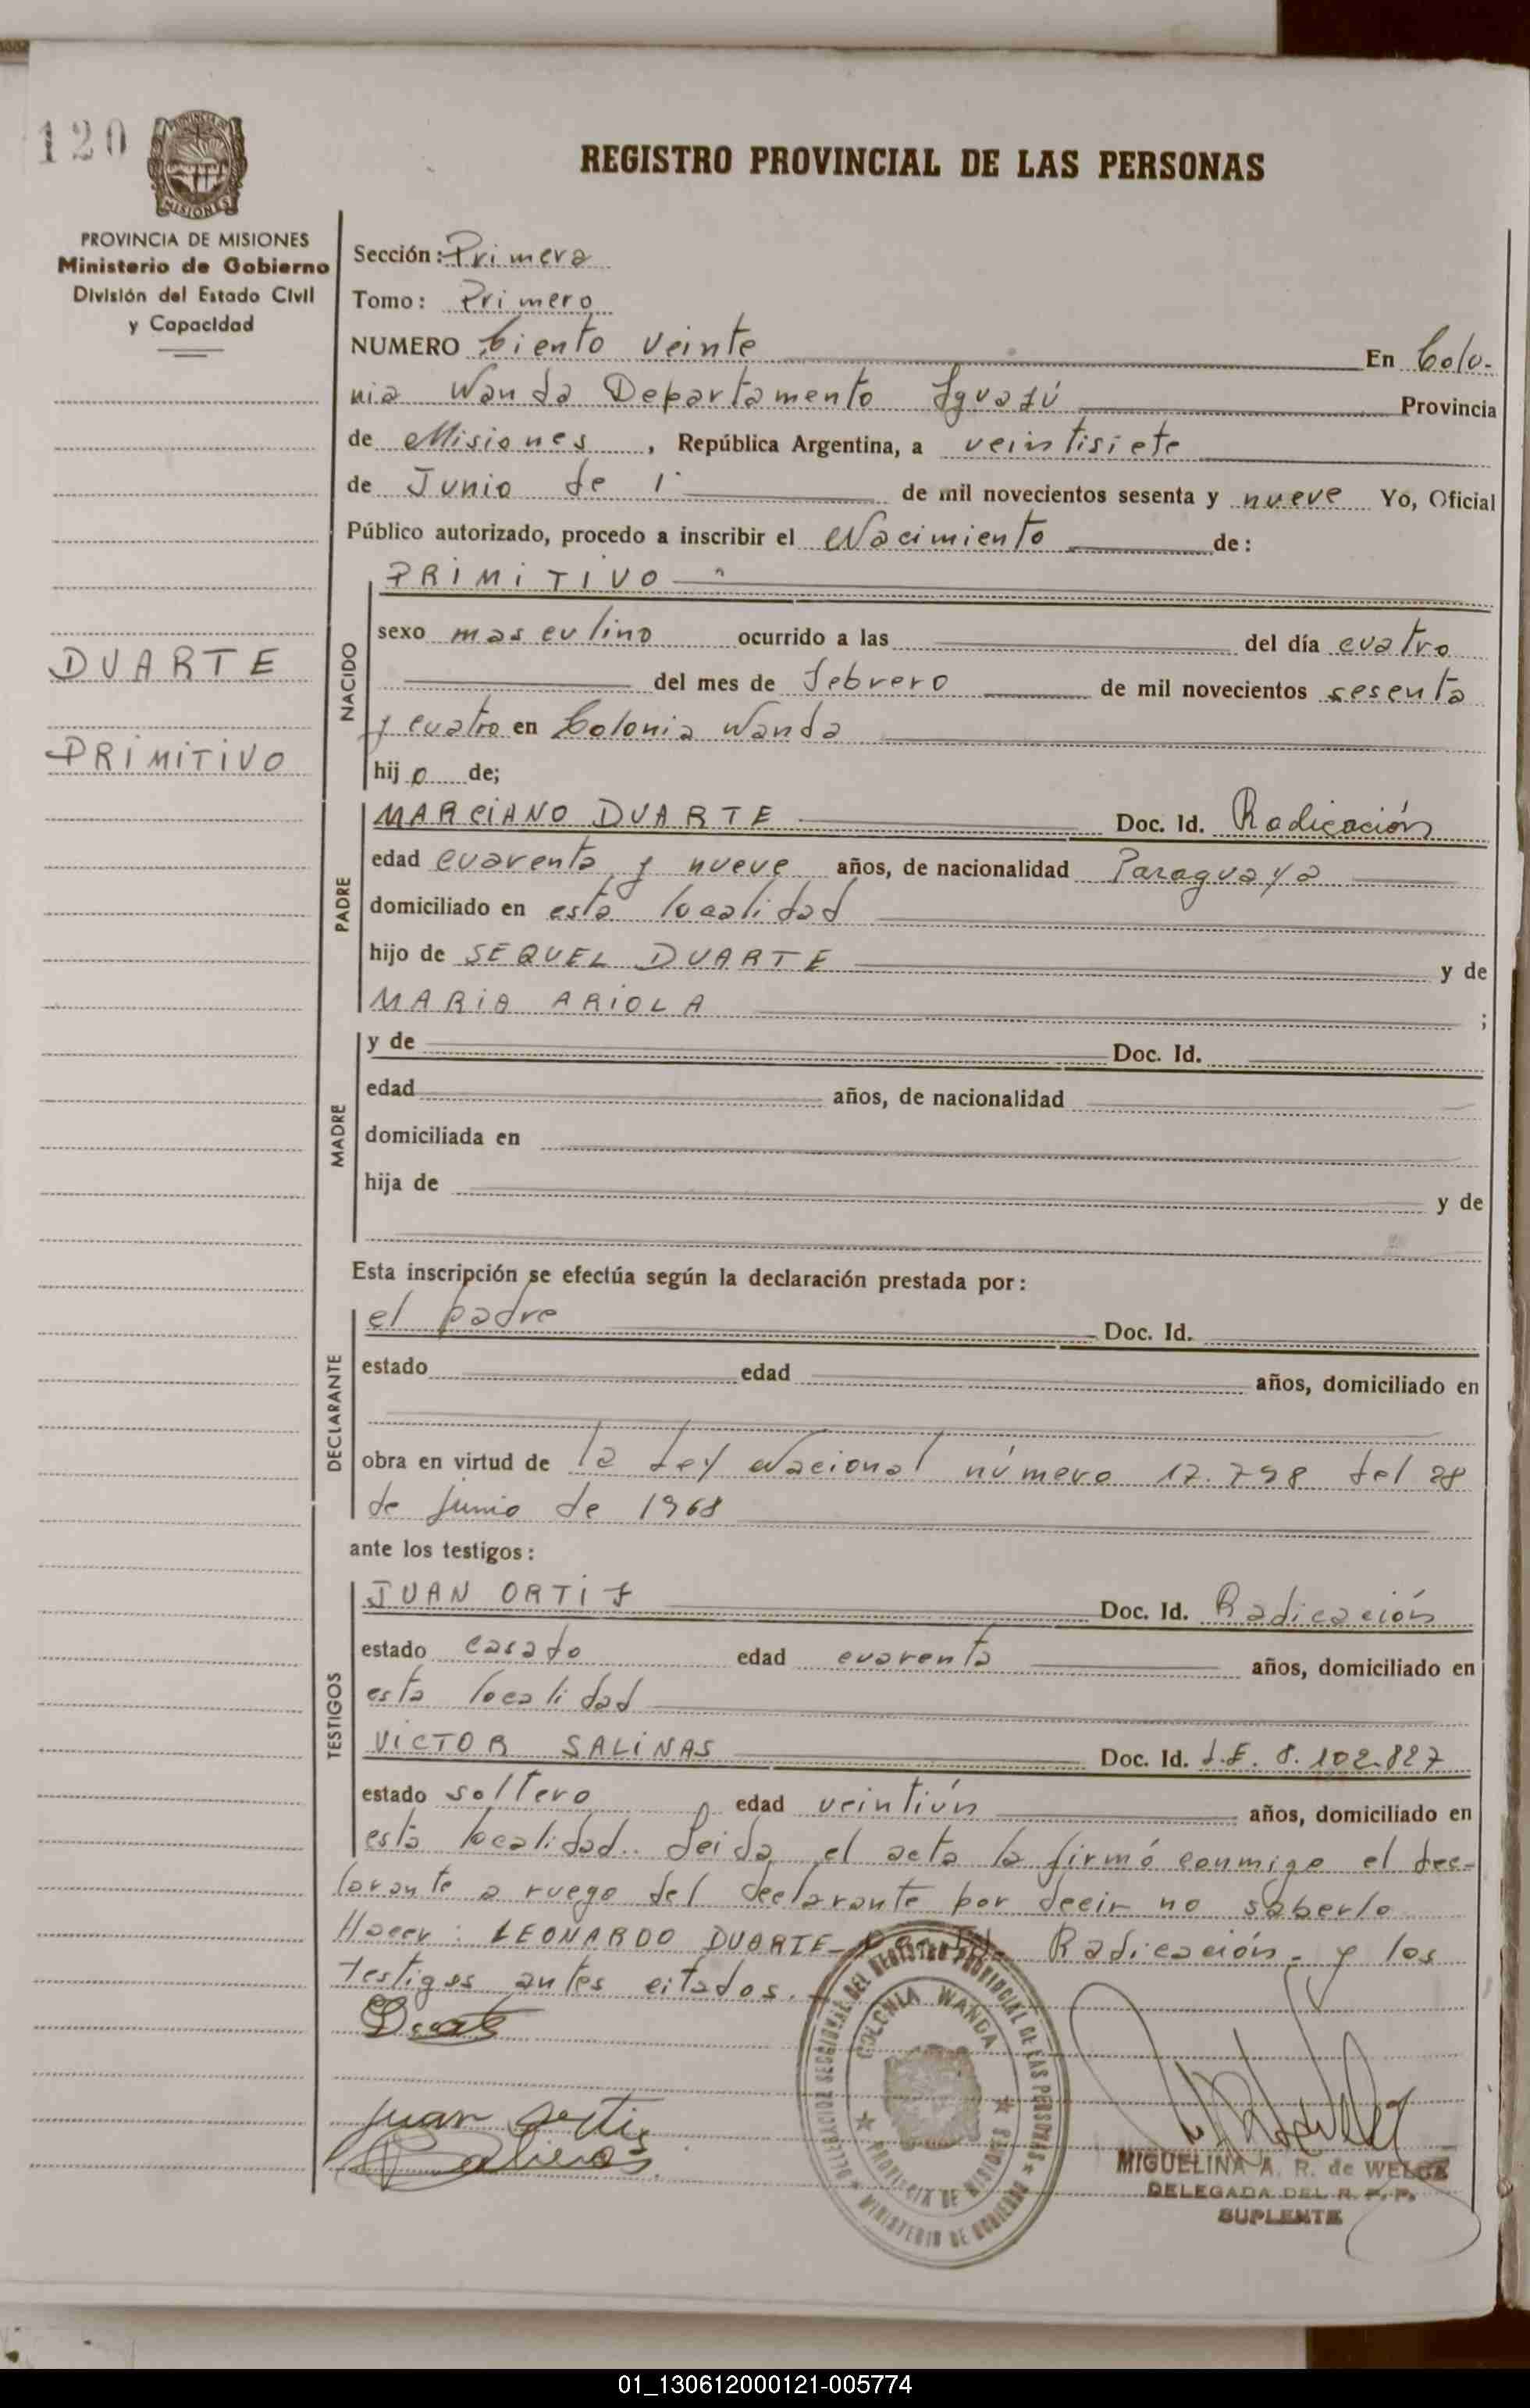 120
MISIONES
PROVINCIA DE MISIONES
Ministerio de Gobierno
División del Estado Civil
y Capacidad
DUARTE
PRIMITIVO
REGISTRO PROVINCIAL DE LAS PERSONAS
Sección: Primera
Tomo: Primero
NUMERO Ciento veinte En Colo-
nia Wanda Departamento Iguazú Provincia
de Misiones, República Argentina, a veintisiete
de Junio de 1 de mil novecientos sesenta y nueve Yo, Oficial
Público autorizado, procedo a inscribir el Nacimiento de:
NACIDO
PRIMITIVO
sexo masculino ocurrido a las del día cuatro
del mes de Febrero de mil novecientos sesenta
y cuatro en Colonia Wanda
hijo de;
PADRE
MARCIANO DUARTE Doc. Id. Radicación
edad cuarenta y nueve años, de nacionalidad Paraguaya
domiciliado en esta localidad
hijo de SEQUEL DUARTE y de
MARIA ARIOLA ;
MADRE
y de Doc. Id.
edad años, de nacionalidad
domiciliada en
hija de y de
Esta inscripción se efectúa según la declaración prestada por:
DECLARANTE
el padre Doc. Id.
estado edad años, domiciliado en
obra en virtud de la Ley Nacional número 17.798 del 28
de Junio de 1968
ante los testigos:
TESTIGOS
JUAN ORTIZ Doc. Id. Radicación
estado casado edad cuarenta años, domiciliado en
esta localidad
VICTOR SALINAS Doc. Id. L.E. 8.102.827
estado soltero edad veintiún años, domiciliado en
esta localidad.. Leida el acta la firmó conmigo el dec-
larante a ruego del declarante por decir no saberlo
Hacer: LEONARDO DUARTE- Radicación- y los
testigos antes citados.
Juan Ortiz
Salinas
DELEGACION SECCIONAL DEL REGISTRO PROVINCIAL DE LAS PERSONAS
COLONIA WANDA
PROVINCIA DE MISIONES
MINISTERIO DE GOBIERNO
MIGUELINA A. R. de
DELEGADA DEL R. P. P.
SUPLENTE
01_130612000121-005774